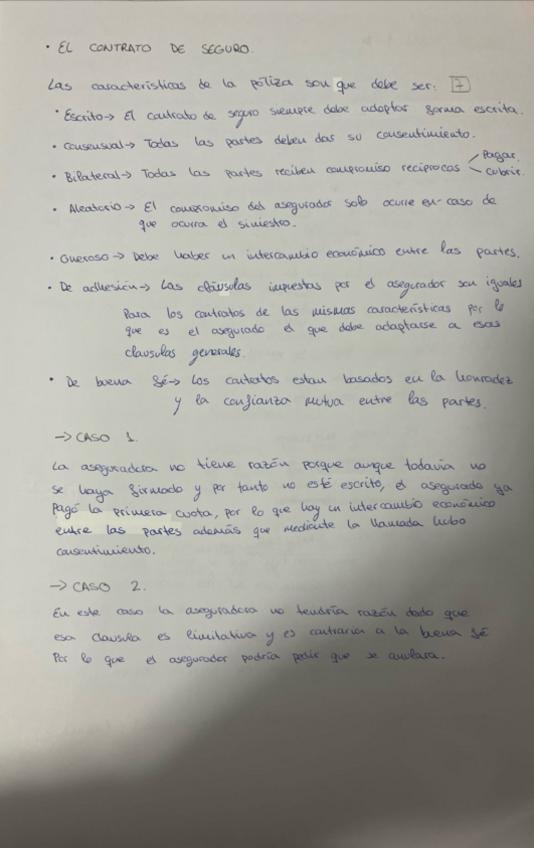 · EL CONTRATO DE SEGURO.
Las características de la póliza son que debe ser: 7
· Escrito → El contrato de seguro siempre debe adoptar forma escrita.
· Consensual → Todas las partes deben dar su consentimiento.
· Bilateral → Todas las partes reciben compromiso recíprocos Pagar. Cubrir.
· Aleatorio → El compromiso del asegurador solo ocurre en caso de
que ocurra el siniestro.
· Oneroso → Debe haber un intercambio económico entre las partes.
· De adhesión → Las cláusulas impuestas por el asegurador son iguales
Para los contratos de las mismas características por lo
que es el asegurado el que debe adaptarse a esas
clausulas generales.
· De buena fé → Los contratos estan basados en la honradez
y la confianza mutua entre las partes.
→ CASO 1.
La aseguradora no tiene razón porque aunque todavía no
se haya firmado y por tanto no esté escrito, el asegurado ya
Pagó la primera cuota, por lo que hay un intercambio económico
entre las partes además que mediante la llamada hubo
consentimiento.
→ CASO 2.
En este caso la aseguradora no tendría razón dado que
esa clausula es limitativa y es contraria a la buena fé
Por lo que el asegurador podría pedir que se anulara.